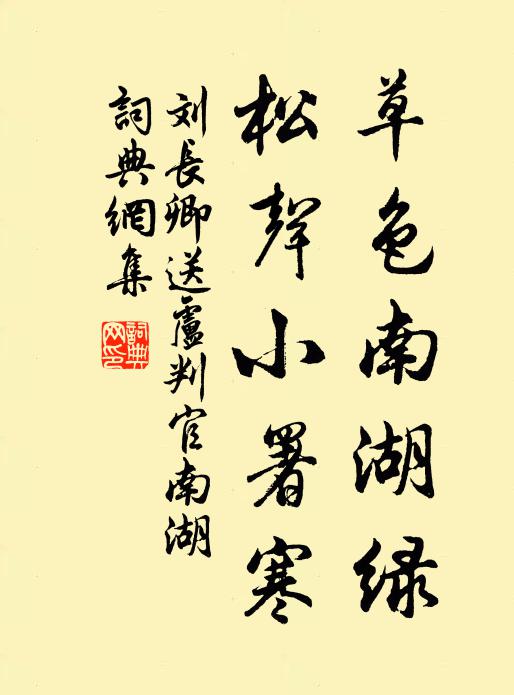 草色南湖绿
松聲小署寒
刘長卿送盧判官南湖
詞典網集
詞典网印